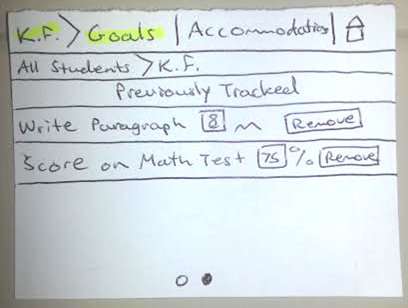 K.F. > Goals | Accommodations
All Students > K.F.
Previously Tracked
Write Paragraph 8 m Remove
Score on Math Test 75 % Remove